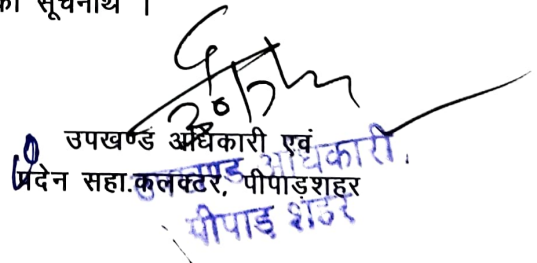 की सूचनार्थ ।
उपखण्ड अधिकारी एवं
पदेन सहा.कलक्टर, पीपाड़शहर
उपखण्ड अधिकारी,
पीपाड़ शहर